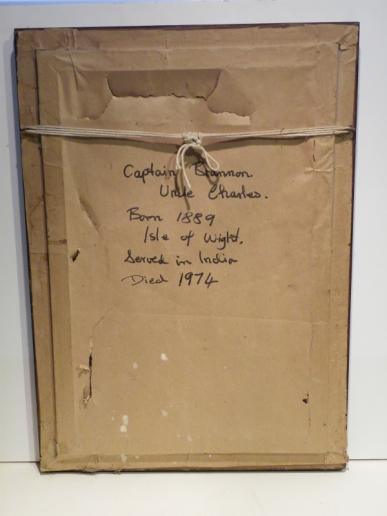 Captain Brannon
Uncle Charles.
Born 1889
Isle of Wight.
Served in India
Died 1974